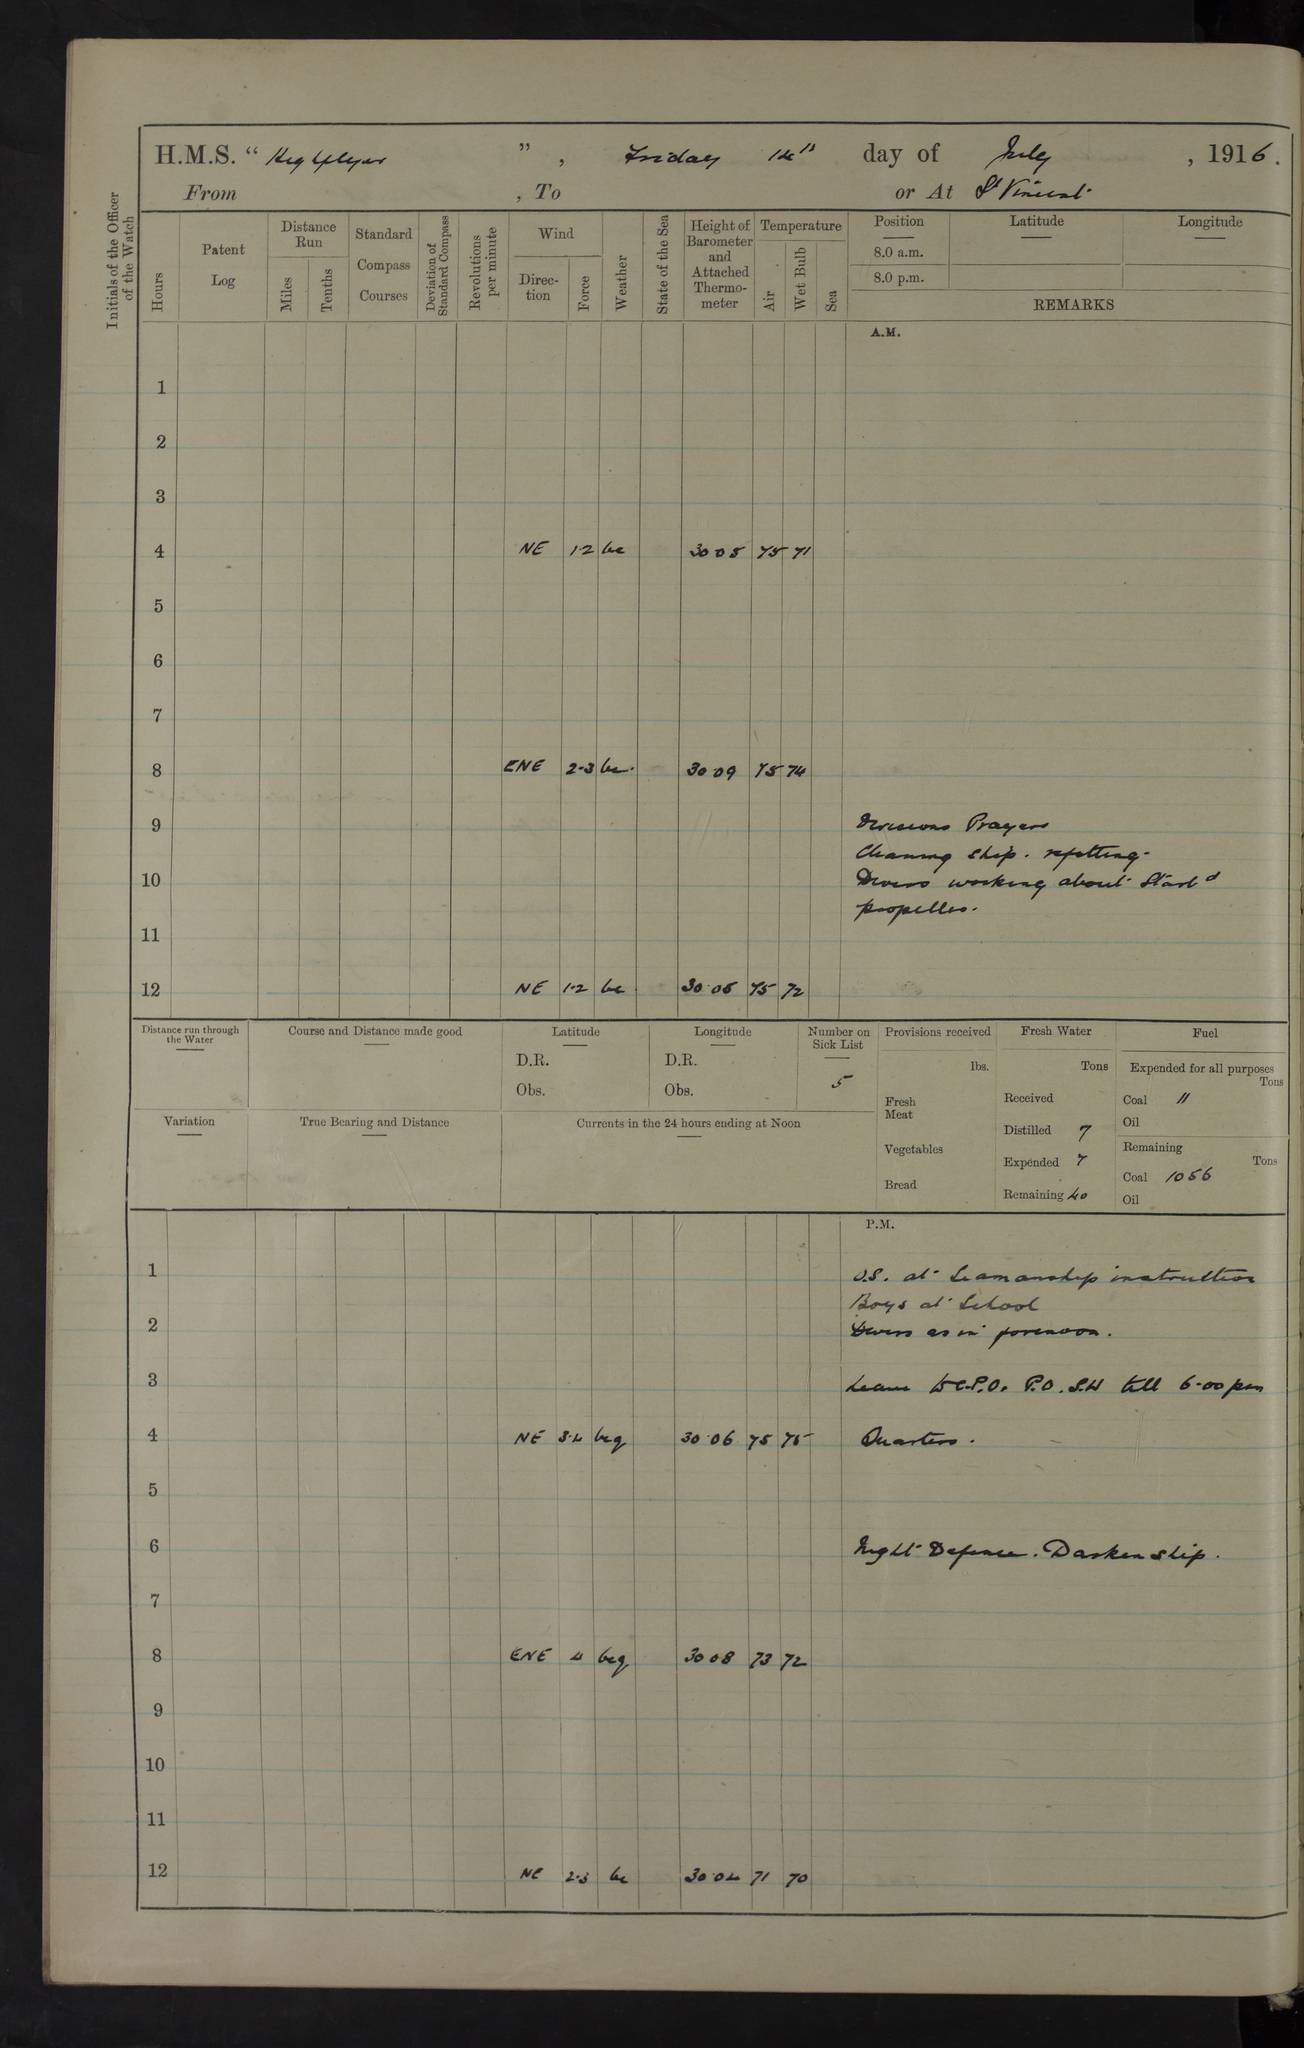 H.M.S. “ Highflyer ” , Friday 14th day of July , 1916.
From , To or At St Vincent
Initials of the Officer of the Watch
Hours
Patent Log
Distance Run
Miles
Tenths
Standard Compass Courses
Deviation of Standard Compass
Revolutions per minute
Wind
Direc-tion
Force
Weather
State of the Sea
Height of Barometer and Attached Thermo-meter
Temperature
Air
Wet Bulb
Sea
Position Latitude Longitude
8.0 a.m.
8.0 p.m.
REMARKS
A.M.
1
2
3
4 NE 1·2 bc 30 05 75 71
5
6
7
8 ENE 2·3 bc. 30 09 75 74
9 Divisions Prayers
Cleaning ship. refitting.
10 Divers working about Starbd
propeller.
11
12 NE 1·2 bc 30·06 75 72
Distance run through the Water
Course and Distance made good
Latitude
D.R.
Obs.
Longitude
D.R.
Obs.
Number on Sick List
5
Provisions received
lbs.
Fresh Meat
Vegetables
Bread
Fresh Water
Tons
Received
Distilled 7
Expended 7
Remaining 40
Fuel
Expended for all purposes
Tons
Coal 11
Oil
Remaining
Tons
Coal 1056
Oil
Variation
True Bearing and Distance
Currents in the 24 hours ending at Noon
P.M.
1 O.S. at Seamanship instruction
Boys at School
2 Divers as in forenoon.
3 Leave to C.P.O. P.O. till 6·00 pm
4 NE 3·4 bcq 30·06 75 75 Quarters.
5
6 Night Defence. Darken ship.
7
8 ENE 4 bcq 30 08 73 72
9
10
11
12 NE 2·3 bc 30·04 71 70